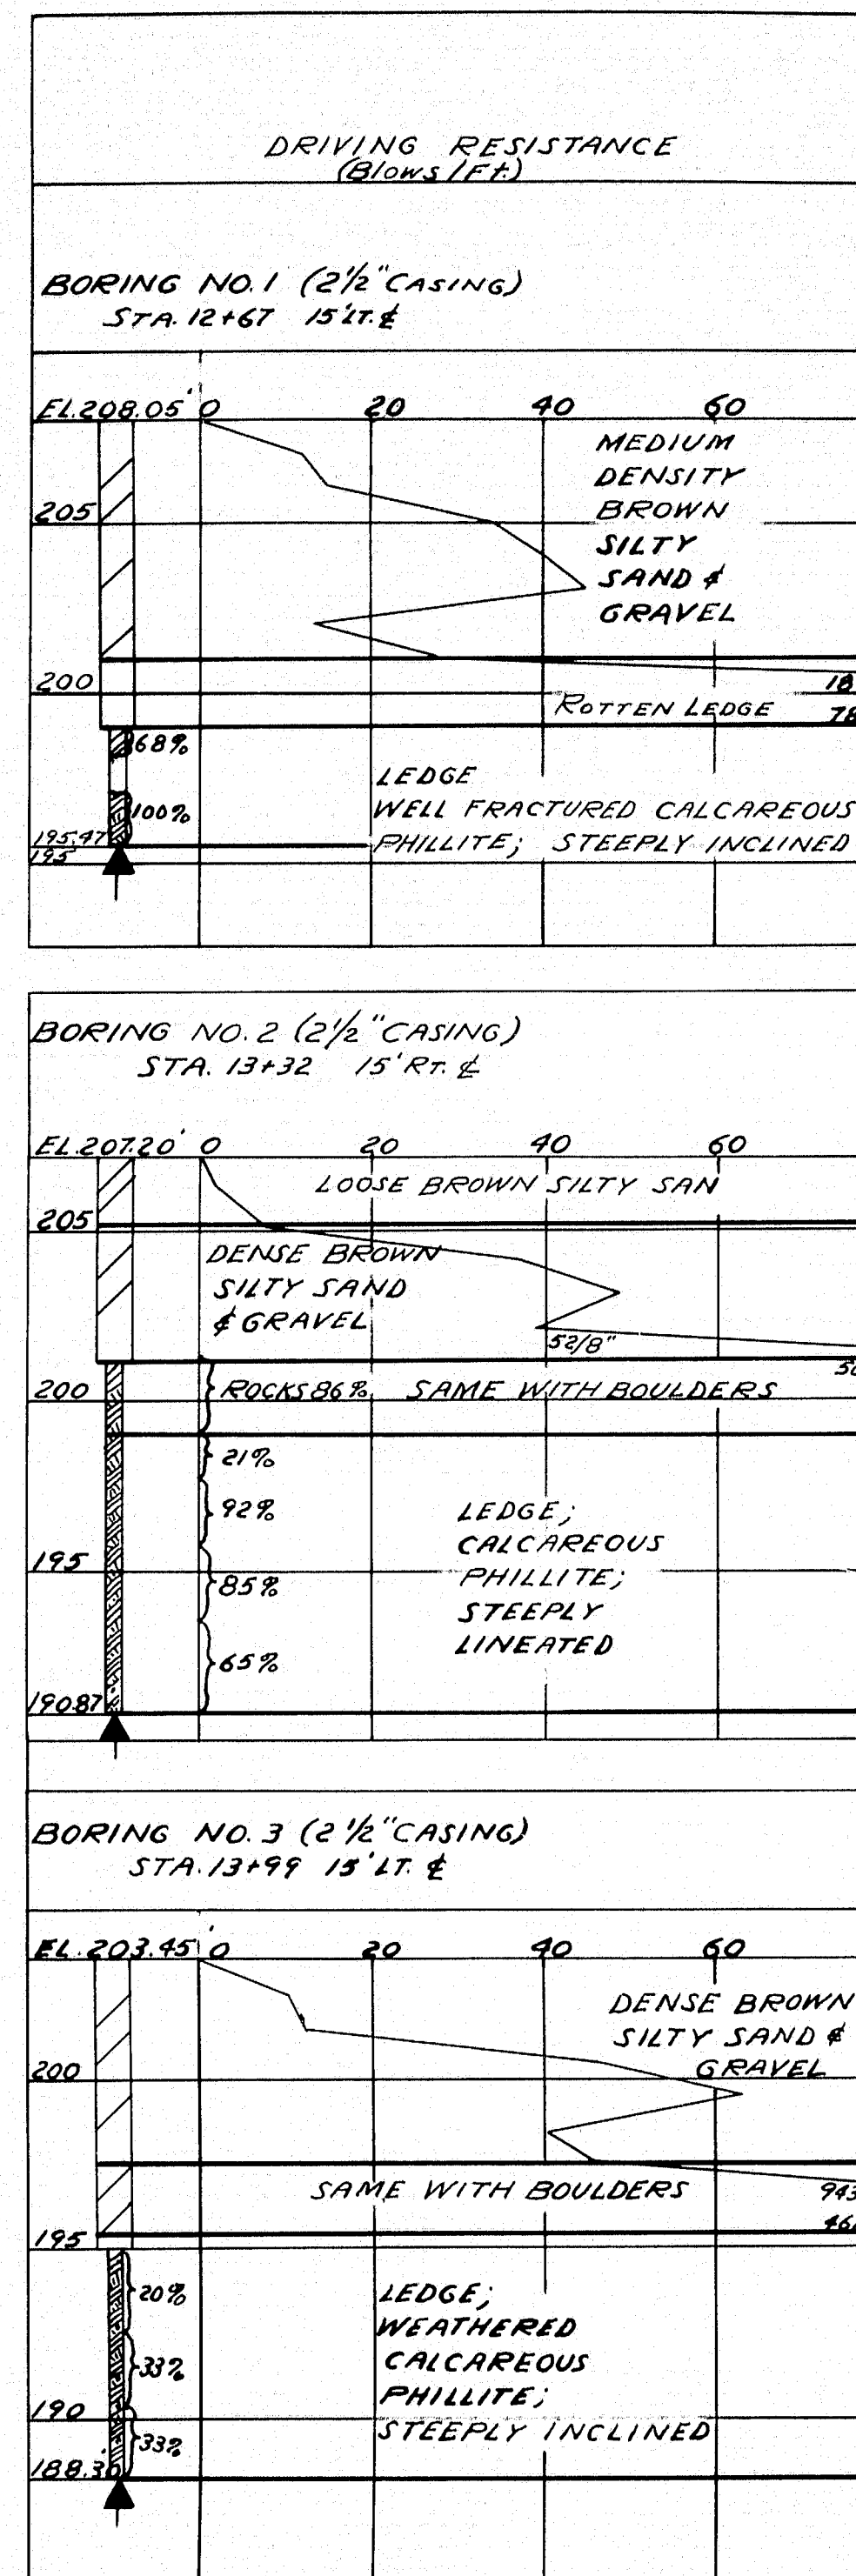 DRIVING RESISTANCE
(Blows/Ft.)
BORING NO. 1 (2½" CASING)
STA. 12+67 15' LT. ℄
EL. 208.05' 0 20 40 60
MEDIUM
DENSITY
BROWN
205
SILTY
SAND &
GRAVEL
200
18
ROTTEN LEDGE 78
68%
LEDGE
100% WELL FRACTURED CALCAREOUS
195.47 PHILLITE; STEEPLY INCLINED
195
BORING NO. 2 (2½" CASING)
STA. 13+32 15' RT. ℄
EL. 207.20' 0 20 40 60
LOOSE BROWN SILTY SAN
205
DENSE BROWN
SILTY SAND
& GRAVEL
52/8"
200 ROCKS 86% SAME WITH BOULDERS
21%
92% LEDGE;
CALCAREOUS
195 PHILLITE;
85%
STEEPLY
LINEATED
65%
190.87
BORING NO. 3 (2½" CASING)
STA. 13+99 15' LT. ℄
EL. 203.45' 0 20 40 60
DENSE BROWN
SILTY SAND &
200 GRAVEL
SAME WITH BOULDERS 943
195
20% LEDGE;
WEATHERED
33% CALCAREOUS
PHILLITE;
190 STEEPLY INCLINED
33%
188.30